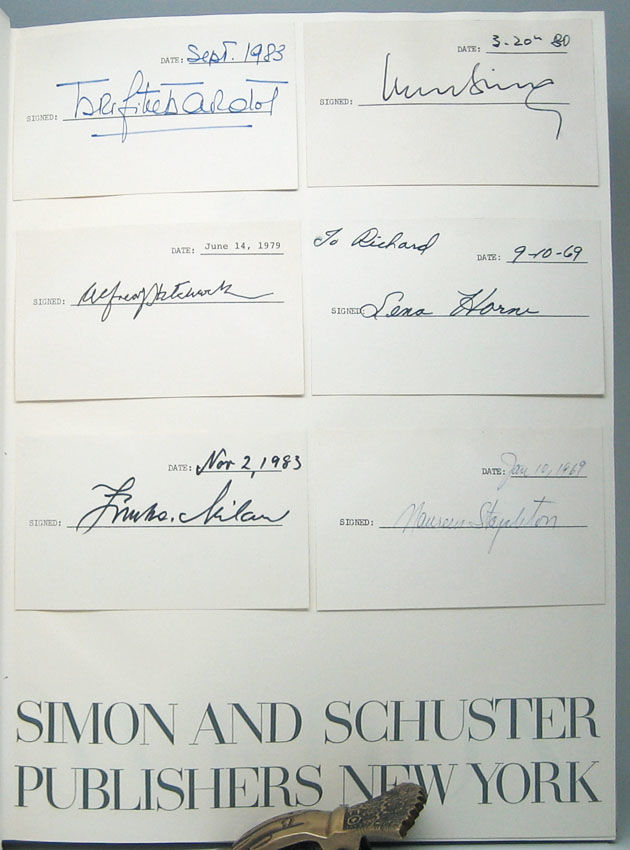 DATE: Sept. 1983
SIGNED: Brigitte Bardot
DATE: 3-20th 80
SIGNED:
DATE: June 14, 1979
SIGNED: Alfred Hitchcock
To Richard
DATE: 9-10-69
SIGNED: Lena Horne
DATE: Nov 2, 1983
SIGNED: Zinka Milanov
DATE: Jan 10, 1969
SIGNED: Maureen Stapleton
SIMON AND SCHUSTER
PUBLISHERS NEW YORK